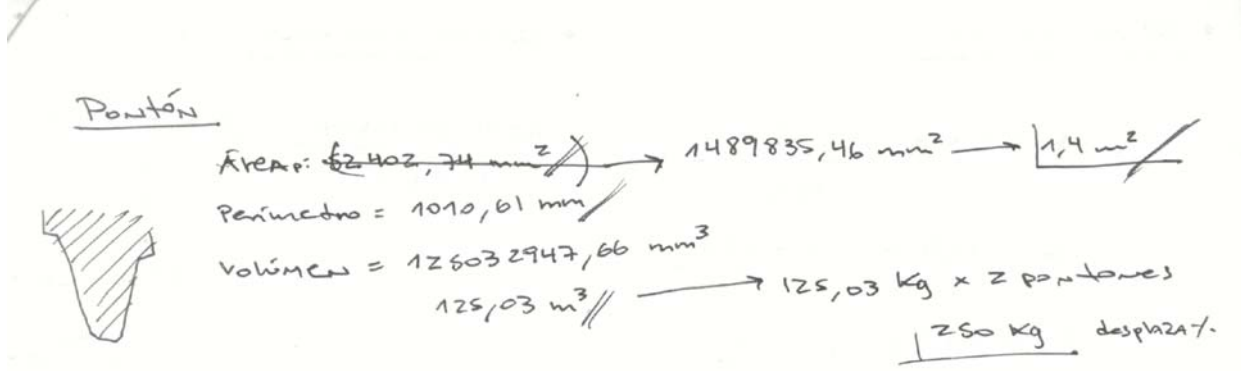 Pontón
Áreap: 62402,74 mm² → 1489835,46 mm² → 1,4 m²
Perímetro = 1010,61 mm
Volúmen = 125032947,66 mm³
125,03 m³ → 125,03 Kg x 2 pontones
250 Kg desplaza/.